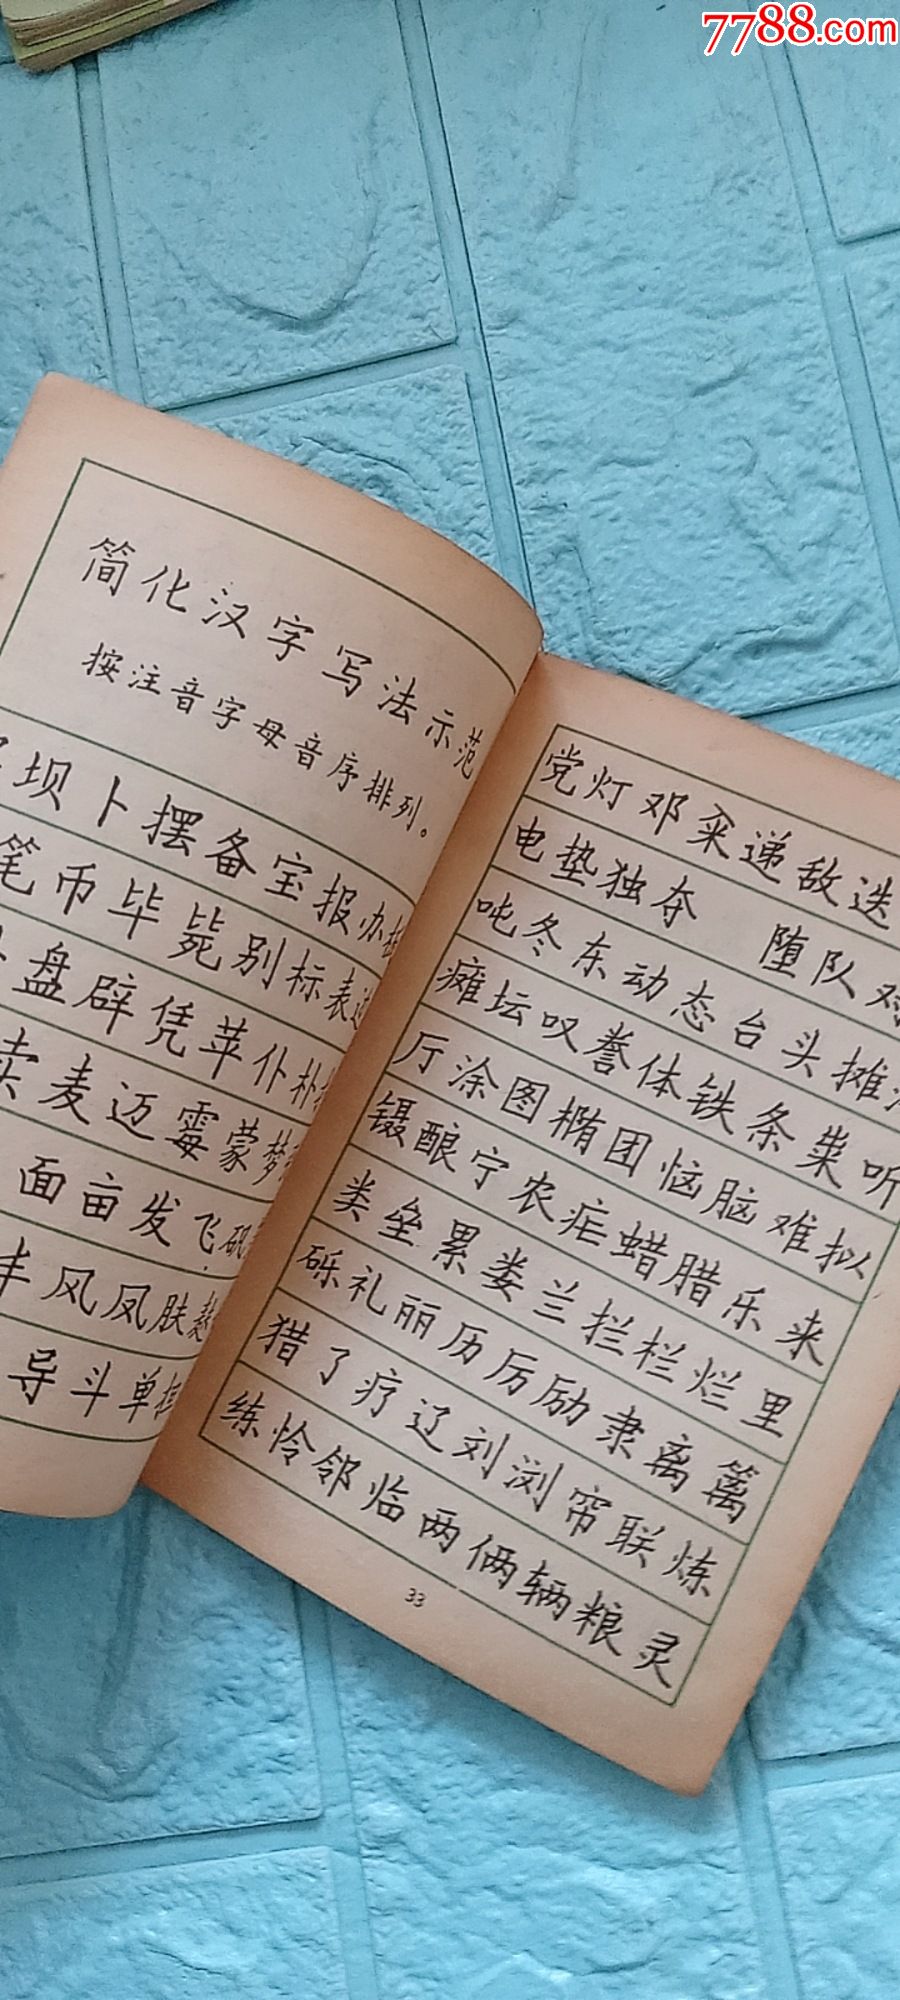 7788.com
简化汉字写法示范
按注音字母音序排列。
坝卜摆备宝报办
笔币毕毙别标表达
盘辟凭苹仆朴
卖麦迈霉蒙梦
面亩发飞矾
丰风凤肤
导斗单
党灯邓籴递敌迭
电垫独夺 堕队对
吨冬东动态台头摊
瘫坛叹誊体铁条粜听
厅涂图椭团恼脑难拟
镊酿宁农疟蜡腊乐来
类垒累娄兰拦栏烂里
砾礼丽历厉励隶离篱
猎了疗辽刘浏帘联炼
练怜邻临两俩辆粮灵
33